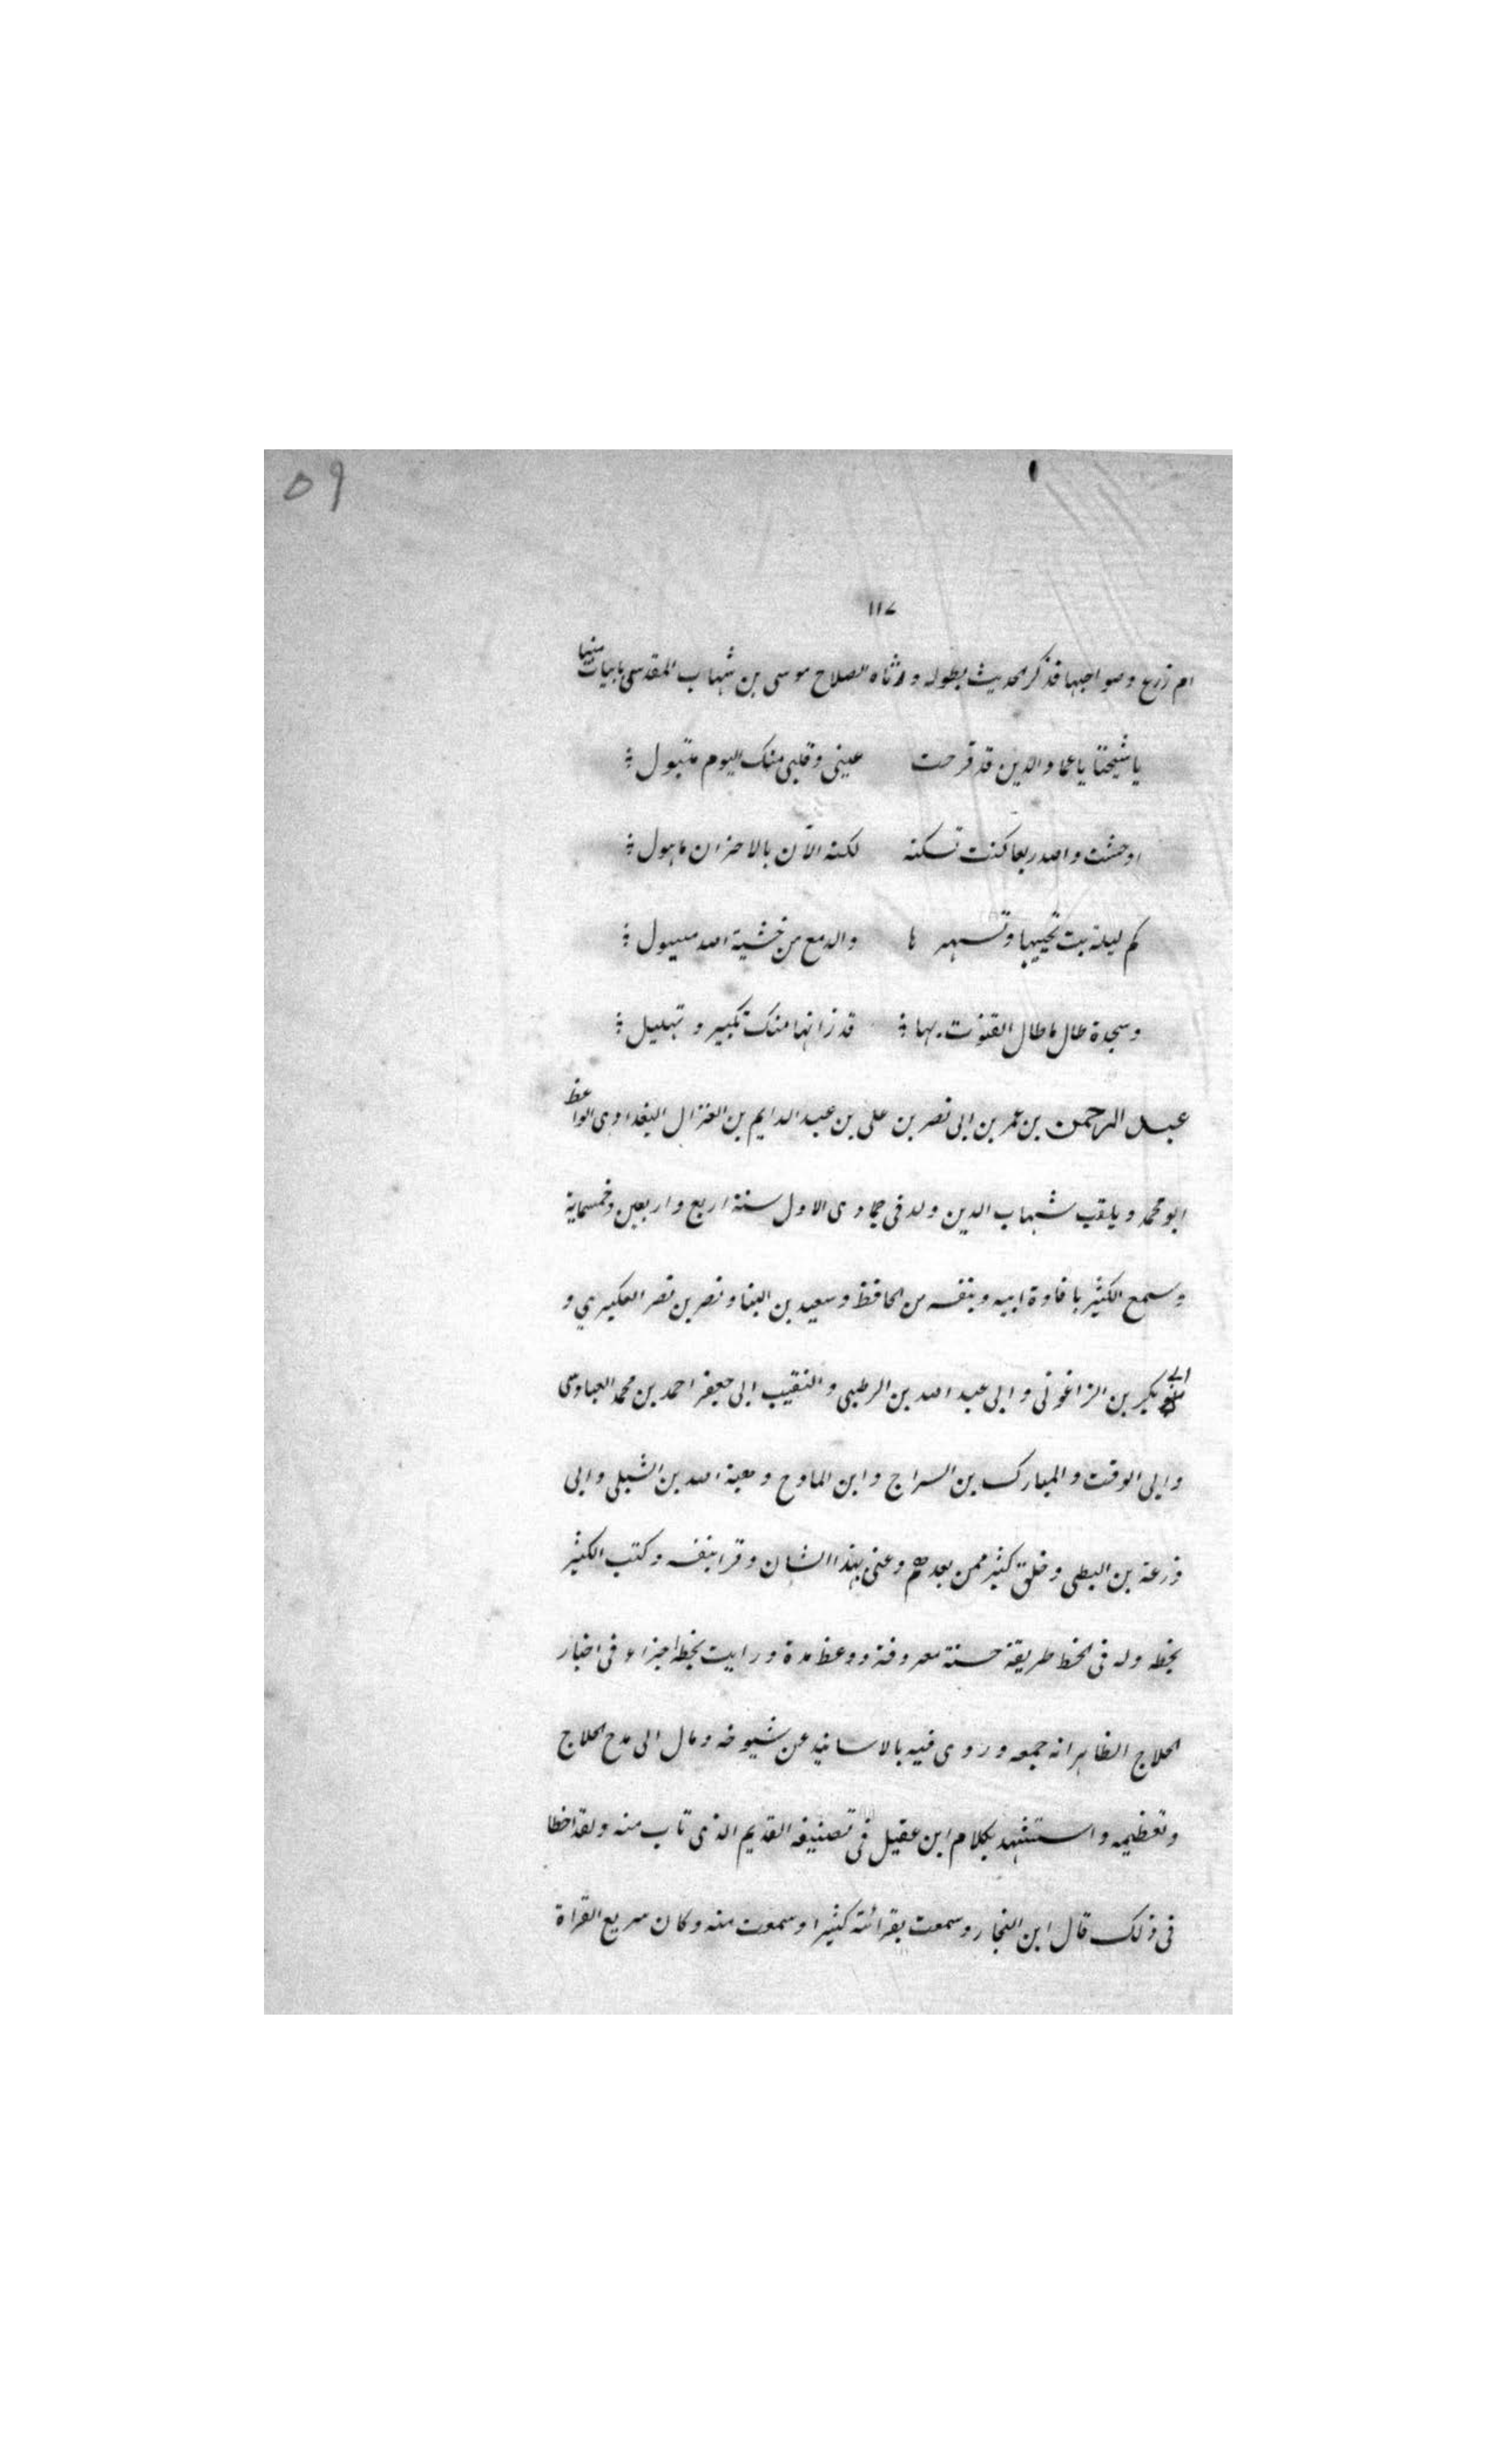 ٥٩
١١٧
ام زرع وصواحبها فذكر الحديث بطوله ورثاه الصلاح موسى بن شهاب المقدسي بابيات منها
ياشيخنا ياعماد الدين قد قرحت عيني وقلبي منك اليوم متبول
اوحشت والله ربعا كنت تسكنه لكنه الآن بالاحزان ماهول
كم ليلة بت تحييها وتسهر ها والدمع من خشية الله مسبول
وسجدة طال ماطال القنوت بها قد زانها منك تكبير وتهليل
عبد الرحمن بن عمر بن ابى نصر بن على بن عبد الدايم بن الغزال البغدادى الواعظ
ابو محمد ويلقب شهاب الدين ولد فى جمادى الاول سنة اربع واربعين وخمسماية
وسمع الكثير بافادة ابيه وبنفسه من الحافظ وسعيد بن البنا ونصر بن نصر العكبري و
ابى بكر بن الزاغونى وابى عبد الله بن الرطبى والنقيب ابى جعفر احمد بن محمد العباسى
وابى الوقت والمبارك بن السراج وابن المادح وهبة الله بن الشبلى وابى
زرعة بن البطى وخلق كثير ممن بعدهم وعنى بهذا الشان وقرا بنفسه وكتب الكثير
بخطه وله فى الخط طريقة حسنة معروفة ووعظ مدة ورايت بخطه اجزاء فى اخبار
الحلاج الظاهر انه جمعه وروى فيه بالاسانيد عن شيوخه ومال الى مدح الحلاج
وتعظيمه واستشهد بكلام ابن عقيل فى تصنيفه القديم الذى تاب منه ولقد اخطا
فى ذلك قال ابن النجار وسمعت بقرائته كثيرا وسمعت منه وكان سريع القراة